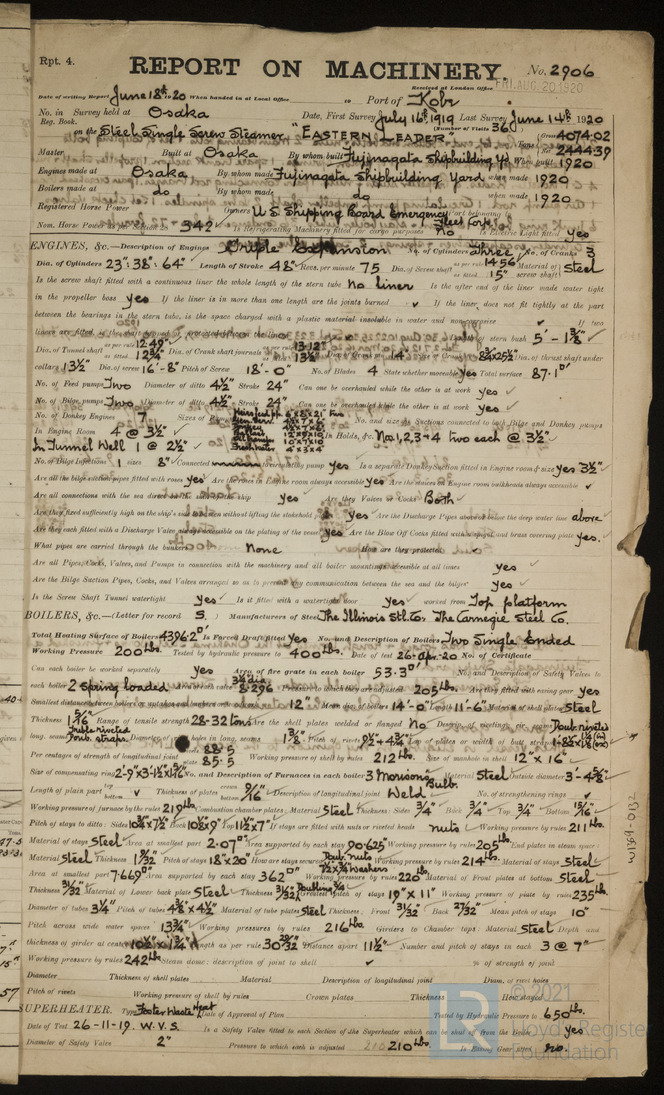 Rpt. 4.
REPORT ON MACHINERY.
No. 2906
Received at London Office FRI. AUG. 20 1920
Date of writing Report June 18th 1920 When handed in at Local Office 19 Port of Kobe
No. in Survey held at Osaka Date, First Survey July 16th 1919 Last Survey June 14th 1920
Reg. Book. (Number of Visits 36
on the Steel Single Screw Steamer "EASTERN LEADER" Tons Gross 4074.02 Net 2444.39
Master Built at Osaka By whom built Fujinagata Shipbuilding Yd When built 1920
Engines made at Osaka By whom made Fujinagata Shipbuilding Yard when made 1920
Boilers made at do By whom made do when made 1920
Registered Horse Power Owners U.S. Shipping Board Emergency Fleet Corpn Port belonging to
Nom. Horse Power as per Section 28 342 Is Refrigerating Machinery fitted for cargo purposes No Is Electric Light fitted Yes
ENGINES, &c.—Description of Engines Triple Expansion No. of Cylinders Three No. of Cranks 3
Dia. of Cylinders 23": 38": 64" Length of Stroke 48" Revs. per minute 75 Dia. of Screw shaft as per rule 14.56 as fitted 15" Material of screw shaft Steel
Is the screw shaft fitted with a continuous liner the whole length of the stern tube No liner Is the after end of the liner made water tight
in the propeller boss yes If the liner is in more than one length are the joints burned If the liner does not fit tightly at the part
between the bearings in the stern tube, is the space charged with a plastic material insoluble in water and non-corrosive If two
liners are fitted, is the shaft lapped or protected between the liners Length of stern bush 5'-1⅜"
Dia. of Tunnel shaft as per rule 12.49" as fitted 12¾" Dia. of Crank shaft journals as per rule 13.12" as fitted 13½" Dia. of thrust shaft under
collars 13½" Dia. of screw 16'-8" Pitch of Screw 18'-0" No. of Blades 4 State whether moveable yes Total surface 87.1
No. of Feed pumps Two Diameter of ditto 4½" Stroke 24" Can one be overhauled while the other is at work yes
No. of Bilge pumps Two Diameter of ditto 4½" Stroke 24" Can one be overhauled while the other is at work yes
No. of Donkey Engines 7 Sizes of Pumps No. and size of Suctions connected to both Bilge and Donkey pumps
In Engine Room 4 @ 3½" In Holds, &c. Nos 1, 2, 3 + 4 two each @ 3½"
In Tunnel Well 1 @ 2½"
No. of Bilge Injections 1 sizes 8" Connected to circulating pump yes Is a separate Donkey Suction fitted in Engine room & size yes 3½"
Are all the bilge suction pipes fitted with roses yes Are the roses in Engine room always accessible yes Are the sluices on Engine room bulkheads always accessible
Are all connections with the sea direct on the skin of the ship yes Are they Valves or Cocks Both
Are they fixed sufficiently high on the ship's side to be seen without lifting the stokehold plates yes Are the Discharge Pipes above or below the deep water line above
Are they each fitted with a Discharge Valve always accessible on the plating of the vessel yes Are the Blow Off Cocks fitted with a spigot and brass covering plate yes.
What pipes are carried through the bunkers None How are they protected
Are all Pipes, Cocks, Valves, and Pumps in connection with the machinery and all boiler mountings accessible at all times yes
Are the Bilge Suction Pipes, Cocks, and Valves arranged so as to prevent any communication between the sea and the bilges yes
Is the Screw Shaft Tunnel watertight yes Is it fitted with a watertight door yes worked from Top platform
BOILERS, &c.—(Letter for record S.) Manufacturers of Steel The Illinois Stl. Co. The Carnegie Steel Co.
Total Heating Surface of Boilers 4396.2 Is Forced Draft fitted yes No. and Description of Boilers Two Single Ended
Working Pressure 200 lbs. Tested by hydraulic pressure to 400 lbs. Date of test 26-Apr-20 No. of Certificate
Can each boiler be worked separately yes Area of fire grate in each boiler 53.3 No. and Description of Safety Valves to
each boiler 2 Spring loaded Area of each valve 8.296 Pressure to which they are adjusted 205 lbs. Are they fitted with easing gear yes
Smallest distance between boilers or uptakes and bunkers or woodwork 12" Mean dia. of boilers 14'-0" Length 11'-6" Material of shell plates Steel
Thickness Range of tensile strength 28-32 tons Are the shell plates welded or flanged No Descrip. of riveting: cir. seams Doub. riveted
long. seams Treble riveted Doub. straps. Diameter of rivet holes in long. seams 1⅜" Pitch of rivets 9½ + 4¾ Lap of plates or width of butt straps
Per centages of strength of longitudinal joint 88.5 85.5 Working pressure of shell by rules 212 lbs. Size of manhole in shell 12" x 16"
Size of compensating ring No. and Description of Furnaces in each boiler 3 Morisons Bulb. Material Steel Outside diameter 3'-4⅝"
Length of plain part Thickness of plates 9/16" Description of longitudinal joint Weld No. of strengthening rings
Working pressure of furnace by the rules 219 lbs Combustion chamber plates: Material Steel Thickness: Sides ¾" Back ¾" Top ¾" Bottom 15/16"
Pitch of stays to ditto: Sides 10¾ x 7½" Back 10⅛ x 9" Top 11½ x 7" If stays are fitted with nuts or riveted heads nuts Working pressure by rules 211 lbs.
Material of stays Steel Area at smallest part 2.07 Area supported by each stay 90.625 Working pressure by rules 205 lbs. End plates in steam space:
Material Steel Thickness 1 9/32 Pitch of stays 18" x 20" How are stays secured Doub. nuts Washers Working pressure by rules 214 lbs. Material of stays Steel
Area at smallest part 7.669 Area supported by each stay 362 Working pressure by rules 220 Material of Front plates at bottom Steel
Thickness 31/32 Material of Lower back plate Steel Thickness 31/32 Doubling Greatest pitch of stays 19" x 11" Working pressure of plate by rules 235 lbs
Diameter of tubes 3¼" Pitch of tubes 4⅝ x 4½" Material of tube plates Steel Thickness: Front 31/32 Back 27/32" Mean pitch of stays 10"
Pitch across wide water spaces 13¾" Working pressures by rules 216 lbs. Girders to Chamber tops: Material Steel Depth and
thickness of girder at centre Length as per rule 30 Distance apart 11½" Number and pitch of stays in each 3 @ 7"
Working pressure by rules 242 lbs Steam dome: description of joint to shell % of strength of joint
Diameter Thickness of shell plates Material Description of longitudinal joint Diam. of rivet holes
Pitch of rivets Working pressure of shell by rules Crown plates Thickness How stayed
SUPERHEATER. Type Foster Waste Heat Date of Approval of Plan Tested by Hydraulic Pressure to 650 lbs.
Date of Test 26-11-19. W.V.S. Is a Safety Valve fitted to each Section of the Superheater which can be shut off from the Boiler yes
Diameter of Safety Valve 2" Pressure to which each is adjusted 210 lbs. Is Easing Gear fitted no.
W369-0132
© 2021
Lloyd's Register
Foundation